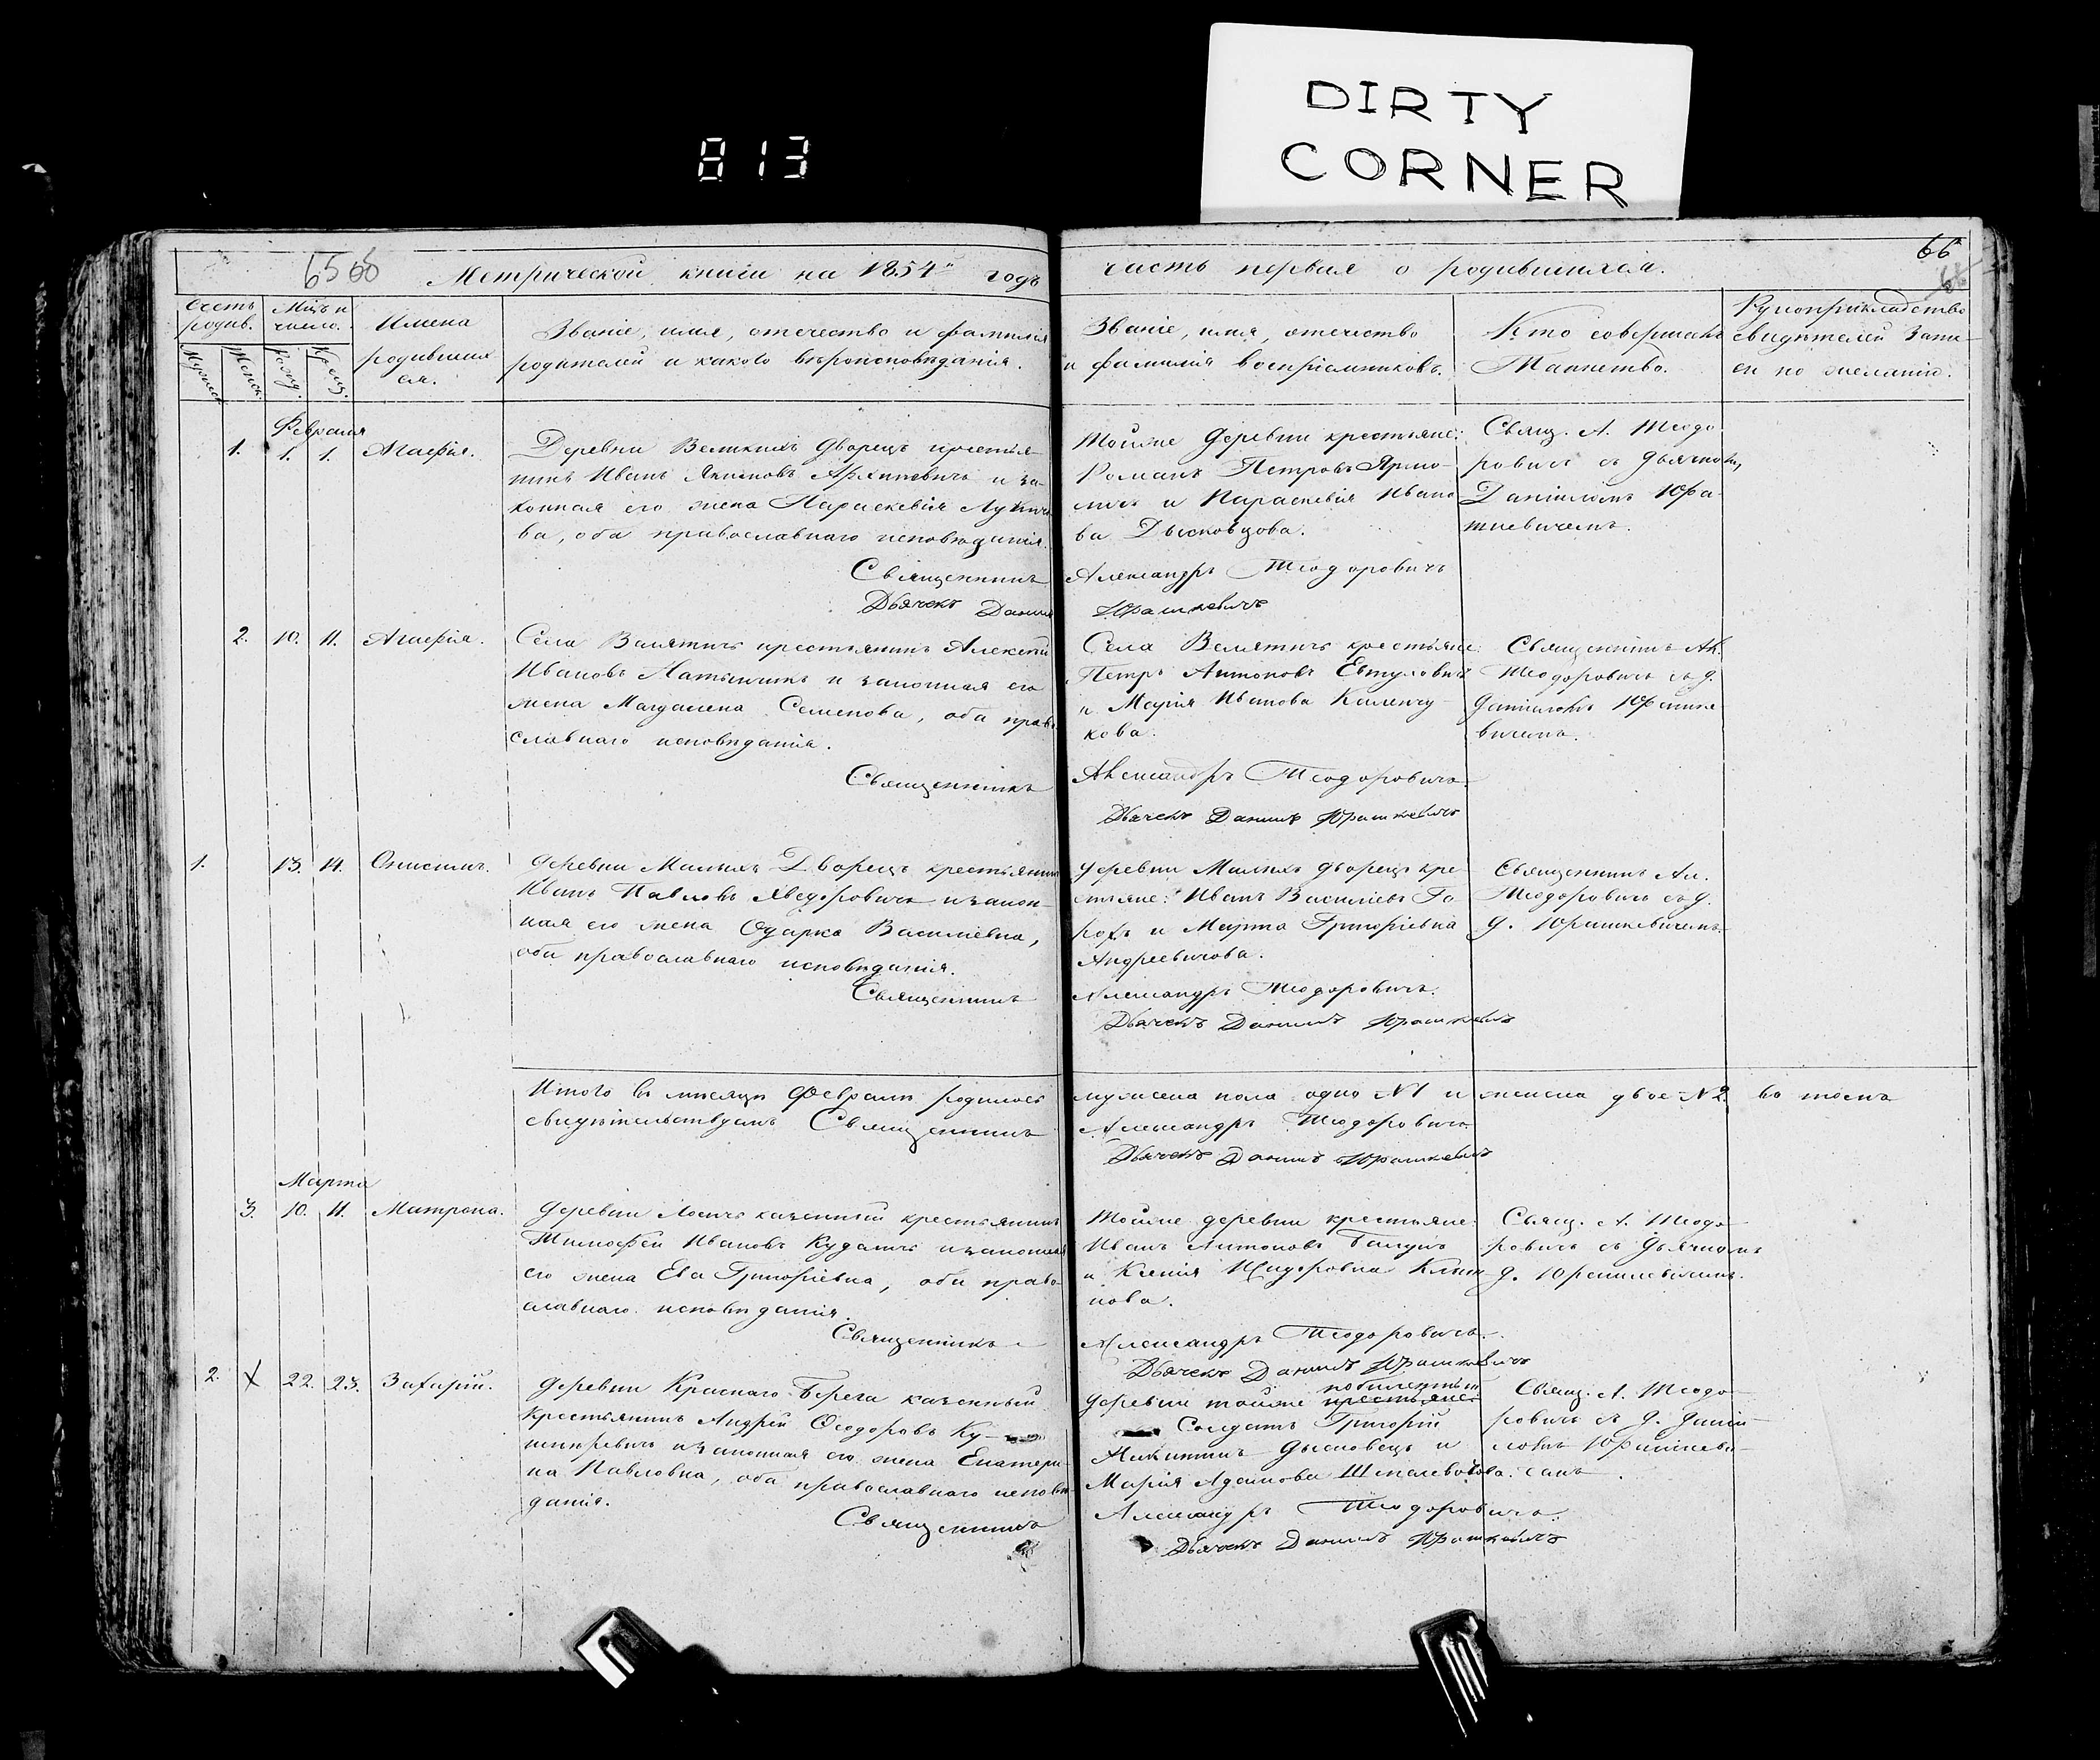 DIRTY
CORNER
813
66
Метрической книги на 1854й годъ
часть первая о родившихся.
Счетъ родив.
Мужск
Женск.
Мцъ и число.
Рожд.
Крещ.
Имена
родивших
ся.
Званіе, имя, отечество и фамилія
родителей и какого вѣроисповѣданія.
Званіе, имя, отечество
и фамилія воспріемниковъ.
Кто совершалъ
Таинство.
Рукоприкладство
свидѣтелей запи-
си по желанію.
Февраля
1. 1. 1. Агафія.
Деревни Великихъ Дворецъ крестья-
нинъ Иванъ Якимовъ и за-
конная его жена Параскевія
ва, оба православнаго исповѣданія.
Священникъ
Дьячекъ Данил
Тойже деревни крестьяне:
Романъ Петровъ Ярмо-
личъ и Параскевія Ивано
ва Дысковцова.
Александръ Теодоровичъ
Юрашкевичъ
Свящ. А. Теодо
ровичъ съ дьячкомъ
Даніиломъ Юра-
шкевичемъ.
2. 10. 11. Агафія.
Села Велятичъ крестьянинъ Алексѣй
Ивановъ и законная его
жена Магдалена Семенова, оба право
славнаго исповѣданія.
Священникъ
Села Велятичъ крестьяне:
Петръ Антоновъ Евтуховичъ
и Марія Иванова
кова.
Александръ Теодоровичъ
Дьячекъ Данилъ Юрашкевичъ
Священникъ Ал.
Теодоровичъ съ д.
Даніиломъ Юрашке
вичемъ.
1. 13. 14. Онисимъ.
Деревни Малыхъ Дворецъ крестьянинъ
Иванъ Павловъ Яведоровичъ и закон-
ная его жена Одарка Василіевна,
оба православнаго исповѣданія.
Священникъ
Деревни Малыхъ Дворецъ кре
стьяне: Иванъ Василіевъ Го
рохъ и Марта Григоріевна
Андреевичова.
Александръ Теодоровичъ.
Дьячекъ Данилъ Юрашкевичъ
Священникъ Ал.
Теодоровичъ съ д.
Д. Юрашкевичемъ.
Итого въ мѣсяцѣ Февралѣ родилось
мужеска пола одно №1 и женска двое №2. въ томъ
свидѣтельствуемъ Священникъ
Александръ Теодоровичъ
Дьячекъ Данилъ Юрашкевичъ
Марта
3. 10. 11. Матрона.
Деревни Лосичъ казенный крестьянинъ
Тимофей Ивановъ и законная
его жена Ева Григоріевна, оба право-
славнаго исповѣданія.
Священникъ
Тойже деревни крестьяне:
Иванъ Антоновъ
и Ксенія
нова.
Александръ Теодоровичъ.
Дьячекъ Данилъ Юрашкевичъ
Свящ. А. Теодо-
ровичъ съ дьячкомъ
Д. Юрашкевичемъ.
2. X 22. 23. Захарій.
Деревни Краснаго-Берега казенный
крестьянинъ Андрей Ѳеодоровъ Ку-
и законная его жена Екатери-
на Павловна, оба православнаго исповѣ-
данія.
Священникъ
деревни тойже крестьяне:
побилетный
Солдатъ Григорій
Никитинъ Дысковецъ и
Марія Адамова
Александръ Теодоровичъ.
Дьячекъ Данилъ Юрашкевичъ
Свящ. А. Теодо-
ровичъ съ д. Даніи-
ломъ Юрашкеви-
чемъ.